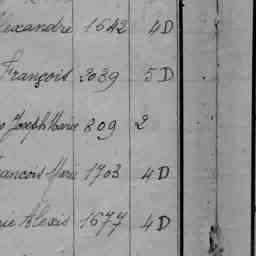 lexandre 1642 4D
François 3039 5D
Joseph Marie 809 2
rancois Marie 1703 4D
rie Alexis 1677 4D